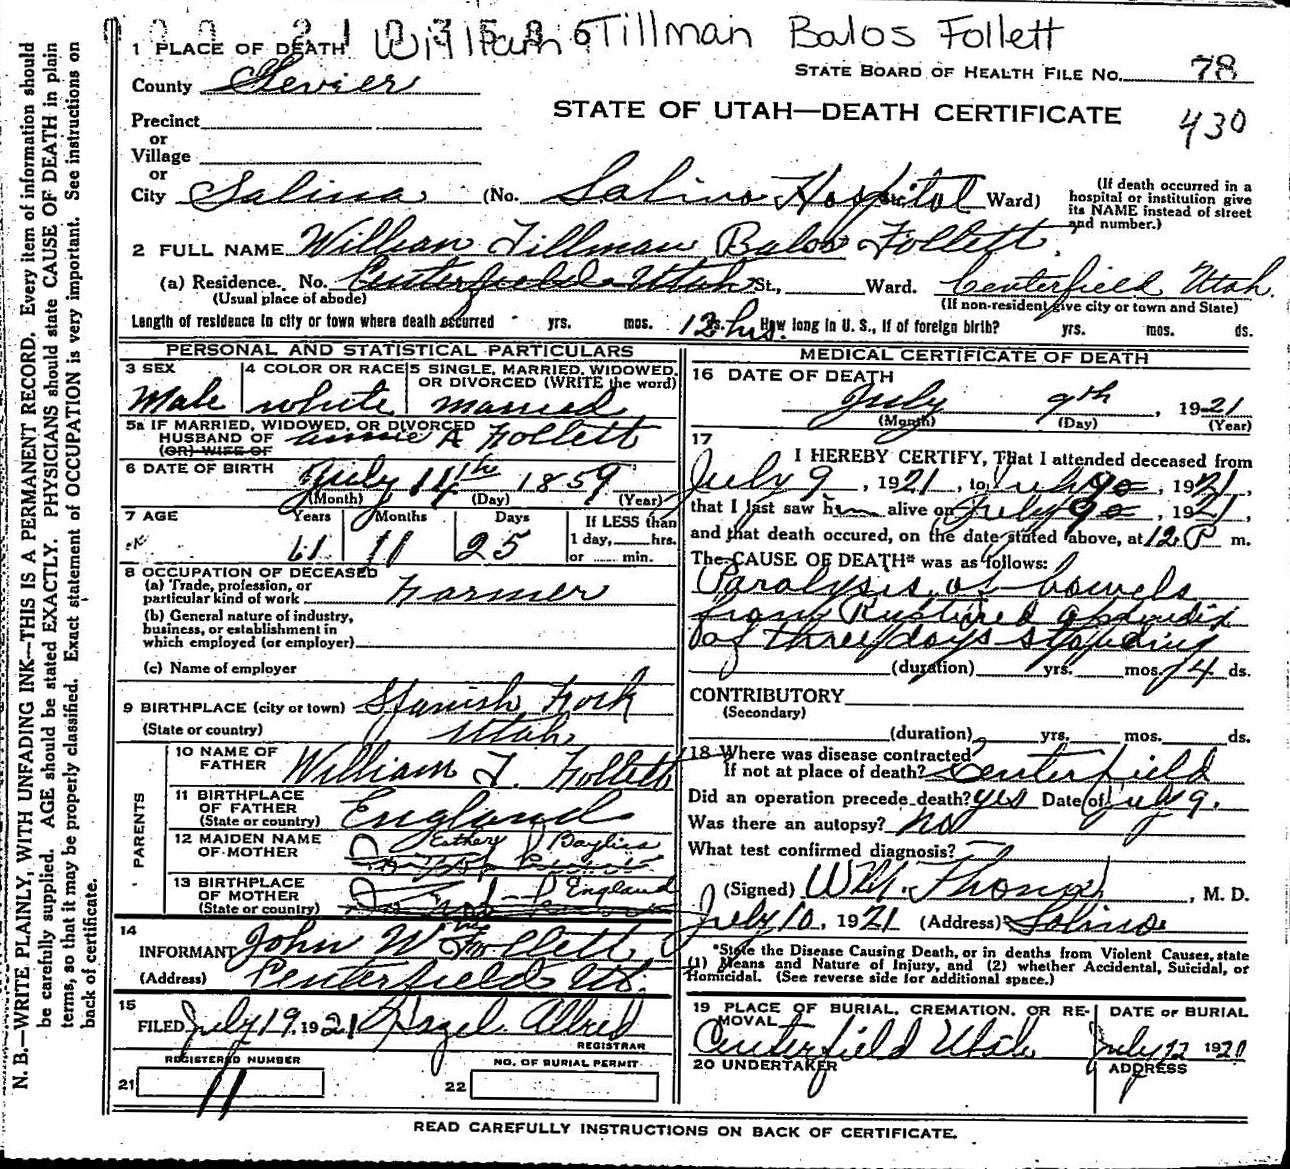 William Tillman Balos Follett
1 PLACE OF DEATH
STATE BOARD OF HEALTH FILE NO. 78
County Sevier
STATE OF UTAH—DEATH CERTIFICATE
430
Precinct
or
Village
or
City Salina (No. Salina Hospital Ward)
(If death occurred in a
hospital or institution give
its NAME instead of street
and number.)
2 FULL NAME William Tillman Balos Follett
(a) Residence. No. Centerfield Utah St., Ward. Centerfield Utah.
(Usual place of abode)
(If non-resident give city or town and State)
Length of residence in city or town where death occurred yrs. mos. 12 hrs. How long in U. S., if of foreign birth? yrs. mos. ds.
PERSONAL AND STATISTICAL PARTICULARS
3 SEX
Male
4 COLOR OR RACE
white
5 SINGLE, MARRIED, WIDOWED,
OR DIVORCED (WRITE the word)
married
5a IF MARRIED, WIDOWED, OR DIVORCED
HUSBAND OF Annie A Follett
(OR) WIFE OF
6 DATE OF BIRTH July 14th 1859
(Month) (Day) (Year)
7 AGE Years Months Days
61 11 25
If LESS than
1 day, hrs.
or min.
8 OCCUPATION OF DECEASED
(a) Trade, profession, or
particular kind of work Farmer
(b) General nature of industry,
business, or establishment in
which employed (or employer)
(c) Name of employer
9 BIRTHPLACE (city or town) Spanish Fork
(State or country) Utah
PARENTS
10 NAME OF
FATHER William T. Follett
11 BIRTHPLACE
OF FATHER
(State or country) England
12 MAIDEN NAME
OF MOTHER Esther Bayliss
13 BIRTHPLACE
OF MOTHER
(State or country) England
14
INFORMANT John W Follett
(Address) Centerfield Ut.
15
FILED July 19, 1921 Hazel Allred
REGISTRAR
REGISTERED NUMBER
21 11
NO. OF BURIAL PERMIT
22
MEDICAL CERTIFICATE OF DEATH
16 DATE OF DEATH
July 9th, 1921
(Month) (Day) (Year)
17
I HEREBY CERTIFY, That I attended deceased from
July 9, 1921, to July 9, 1921,
that I last saw him alive on July 9, 1921,
and that death occured, on the date stated above, at 12 P m.
The CAUSE OF DEATH* was as follows:
Paralysis of bowels
from Ruptured appendix
of three days standing
(duration) yrs. mos. 4 ds.
CONTRIBUTORY
(Secondary)
(duration) yrs. mos. ds.
18 Where was disease contracted
If not at place of death? Centerfield
Did an operation precede death? yes Date of July 9.
Was there an autopsy? no
What test confirmed diagnosis?
(Signed) , M. D.
July 10, 1921 (Address) Salina
*State the Disease Causing Death, or in deaths from Violent Causes, state
(1) Means and Nature of Injury, and (2) whether Accidental, Suicidal, or
Homicidal. (See reverse side for additional space.)
19 PLACE OF BURIAL, CREMATION, OR RE-
MOVAL
Centerfield Utah
DATE OF BURIAL
July 12 1920
20 UNDERTAKER
ADDRESS
READ CAREFULLY INSTRUCTIONS ON BACK OF CERTIFICATE.
N. B.—WRITE PLAINLY, WITH UNFADING INK—THIS IS A PERMANENT RECORD. Every item of information should
be carefully supplied. AGE should be stated EXACTLY. PHYSICIANS should state CAUSE OF DEATH in plain
terms, so that it may be properly classified. Exact statement of OCCUPATION is very important. See instructions on
back of certificate.